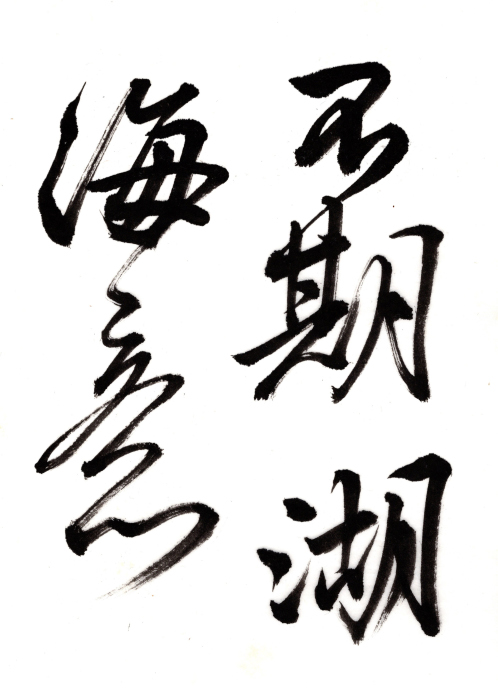 不期湖
海意